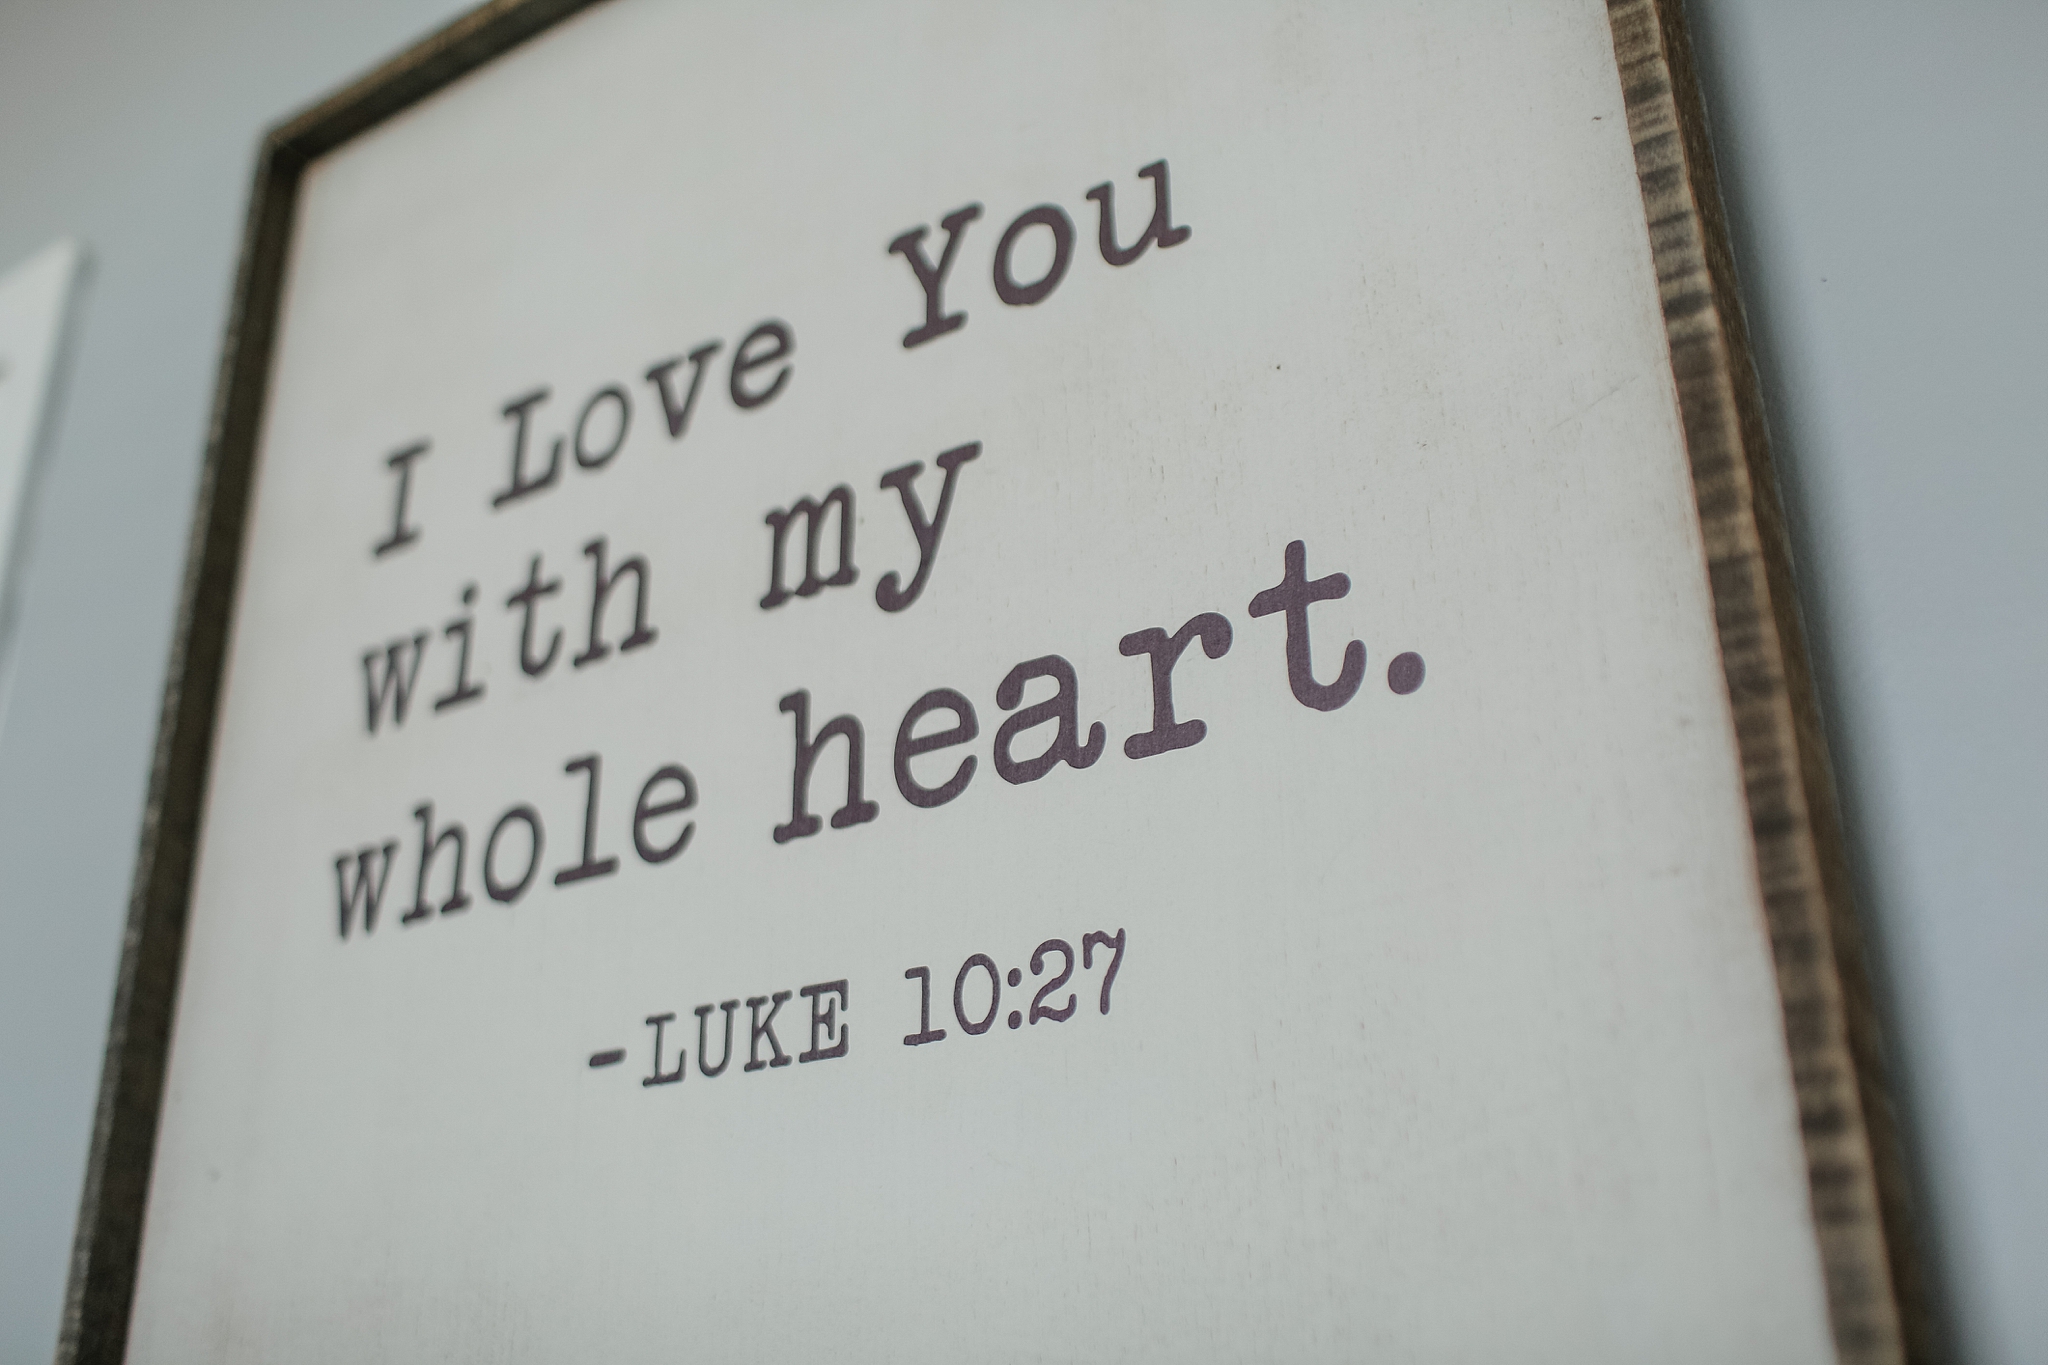 I Love You
with my
whole heart.
-LUKE 10:27